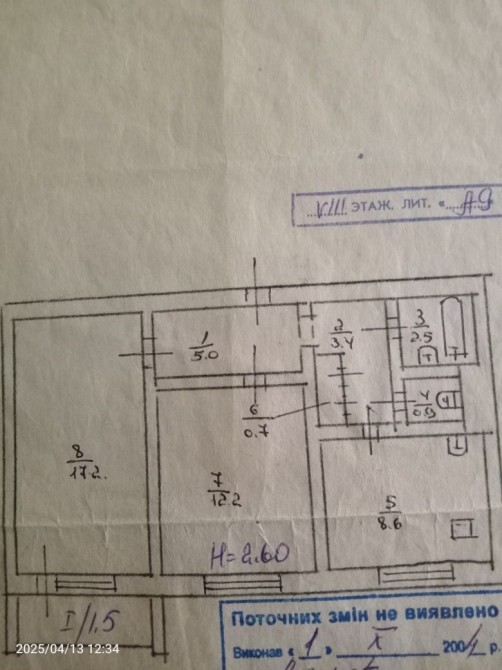 VIII ЭТАЖ. ЛИТ. «А9
1
5.0
2
3.4
3
2.5
4
0.9
6
0.7
8
17.2.
7
12.2
5
8.6
H=2.60
I/1.5
Поточних змін не виявлено
Виконав «1» X 2004 р
2025/04/13 12:34